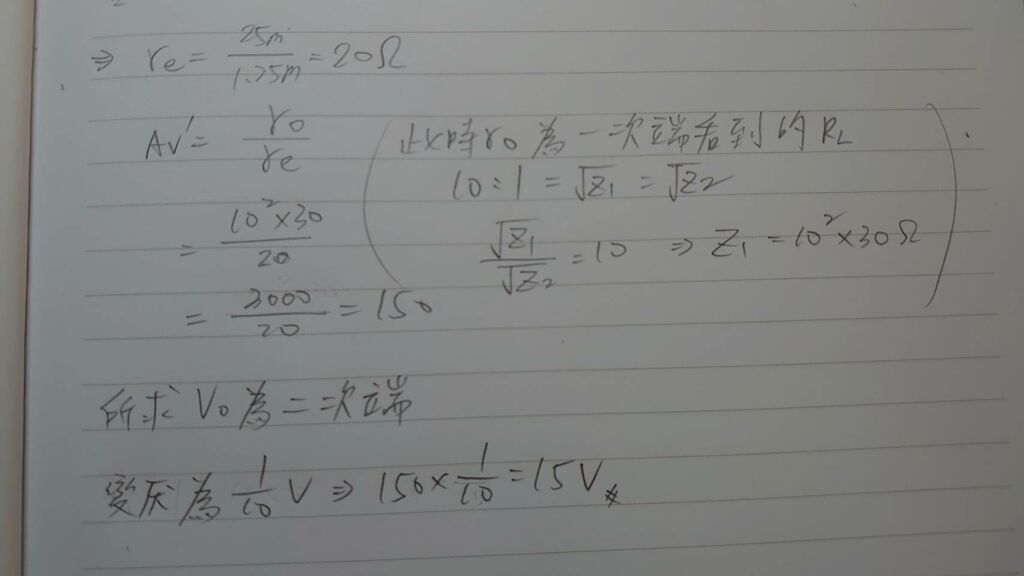 ⇒ re = 25m/1.25m = 20Ω
Av' = ro/re
= 10²×30/20
= 3000/20 = 150
(此時ro為一次端看到的RL
10:1 = √Z1 = √Z2
√Z1/√Z2 = 10 ⇒ Z1 = 10²×30Ω)
所求Vo為二次端
變压為 1/10 V ⇒ 150× 1/10 = 15V